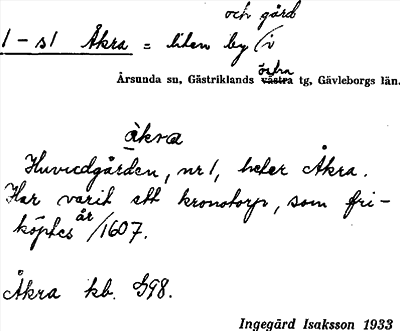 och gård
1 - s1 Åkra = liten by / i
östra
Årsunda sn, Gästriklands västra tg, Gävleborgs län.
åkra
Huvudgården, nr 1, heter Åkra.
Har varit ett kronotorp, som fri-
år
köptes /1607.
Åkra kb. §98.
Ingegärd Isaksson 1933